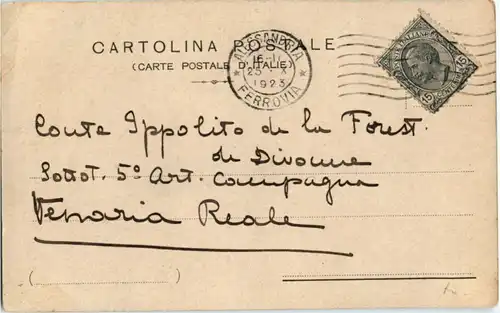 CARTOLINA POSTALE
(CARTE POSTALE D'ITALIE)
ALESSANDRIA
25 X
1923
FERROVIA
Conte Ippolito de la Forest
de Divonne
Sottot. 5º Art. Campagna
Venaria Reale